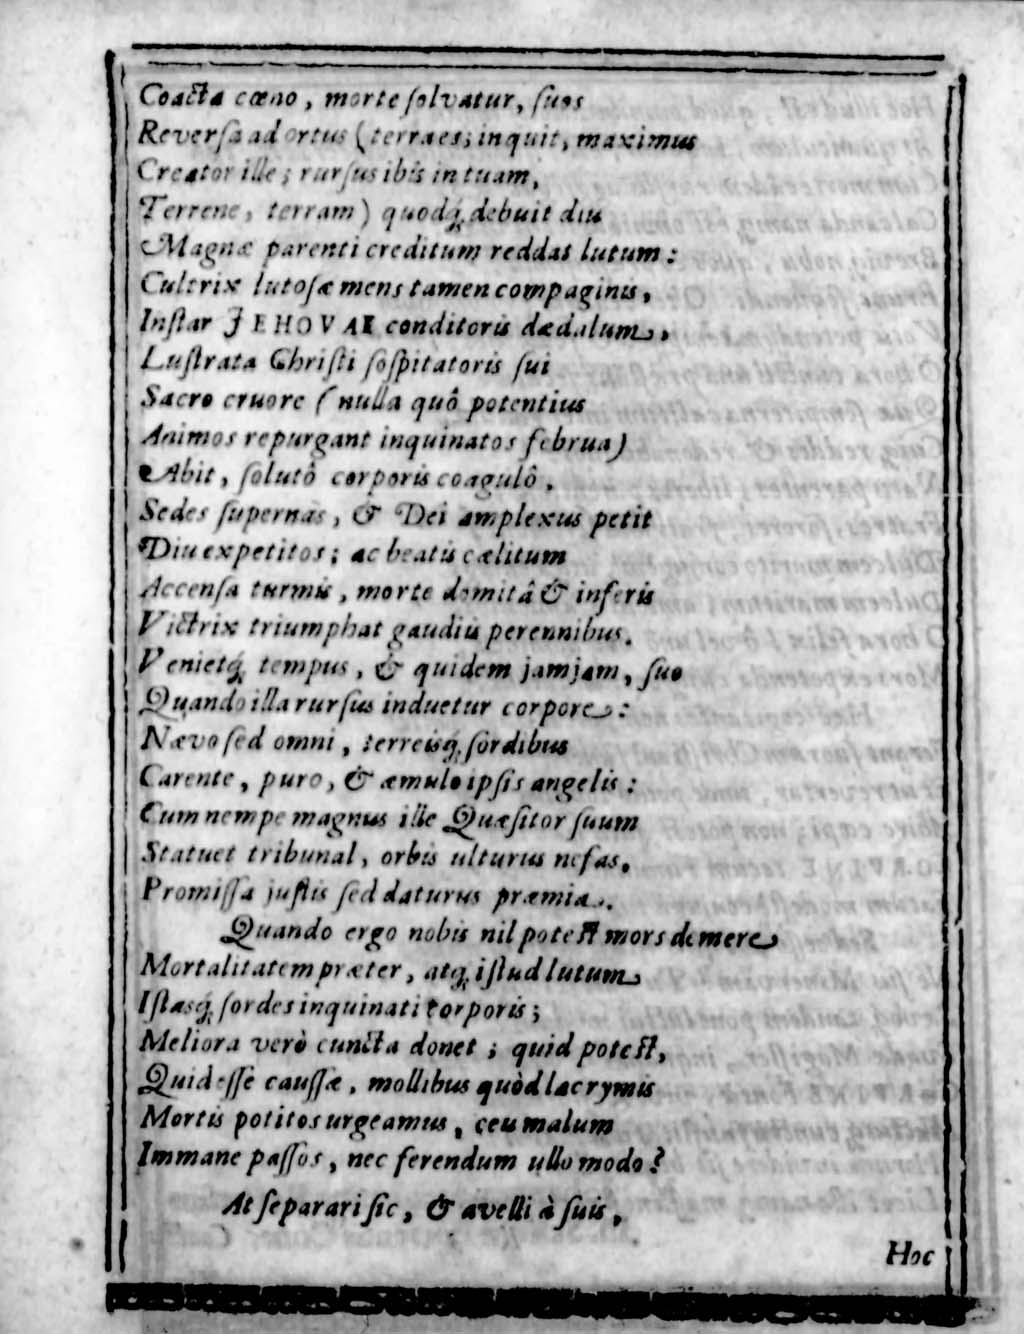 Coacta cœno, morte solvatur, suos
Reversa ad ortus (terra es; inquit, maximus
Creator ille; rursus ibis in tuam,
Terrene, terram) quodq́; debuit diu
Magnæ parenti creditum reddat lutum:
Cultrix lutosæ mens tamen compaginis,
Instar JEHOVAE conditoris dædalum,
Lustrata Christi sospitatoris sui
Sacro cruore (nulla quô potentius
Animos repurgant inquinatos februa)
Abit, solutô corporis coagulô,
Sedes supernas, & Dei amplexus petit
Diu expetitos; ac beatis cælitum
Accensa turmis, morte domitâ & inferis
Victrix triumphat gaudiis perennibus.
Venietq́; tempus, & quidem jamjam, suo
Quando illa rursus induetur corpore:
Nævo sed omni, terreisq́; sordibus
Carente, puro, & æmulo ipsis angelis:
Cum nempe magnus ille Quæsitor suum
Statuet tribunal, orbis ulturus nefas,
Promissa justis sed daturus præmia.
Quando ergo nobis nil potest mors demere
Mortalitatem præter, atq́; istud lutum
Istasq́; sordes inquinati corporis;
Meliora verò cuncta donet; quid potest,
Quid esse caussæ, mollibus quòd lacrymis
Mortis potitos urgeamus, ceu malum
Immane passos, nec ferendum ullo modo?
At separari sic, & avelli à suis,
Hoc